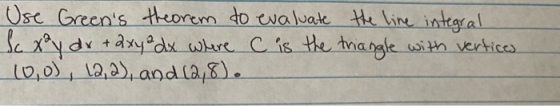 Use Green's theorem to evaluate the line integral
∫c x²y dx + 2xy²dx where C is the triangle with vertices
(0,0), (2,2), and (2,8).